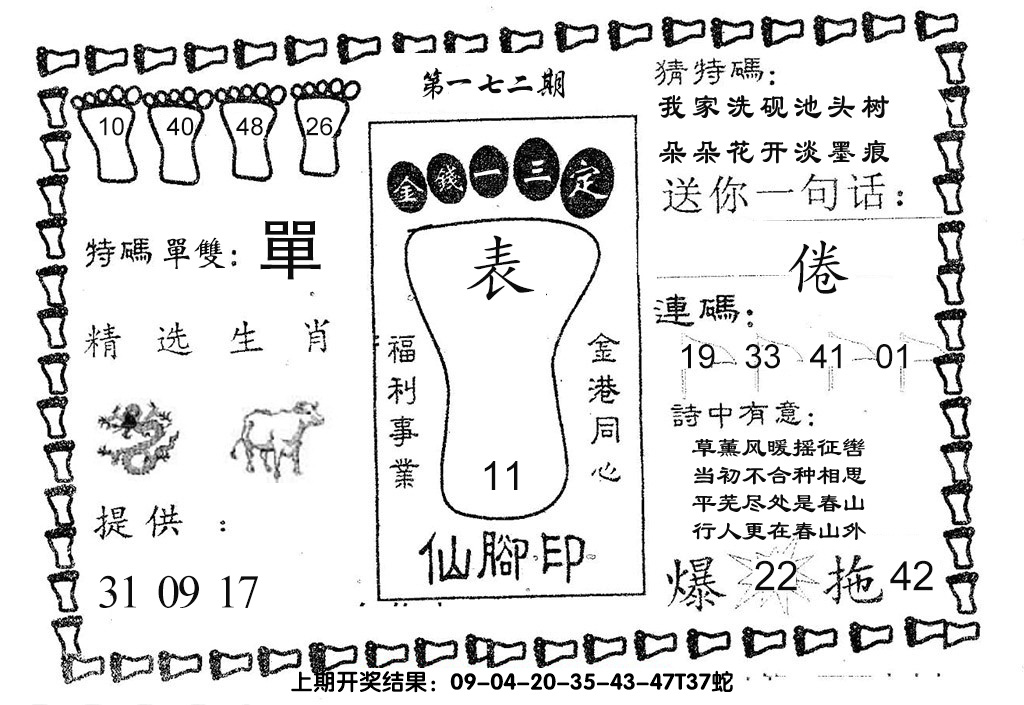 第一七二期
10 40 48 26
特碼單雙：單
精选生肖
提供：
31 09 17
金錢一三定
表
福利事業
金港同心
11
仙腳印
猜特碼：
我家洗砚池头树
朵朵花开淡墨痕
送你一句话：
倦
連碼：
19 33 41 01
詩中有意：
草薰风暖摇征辔
当初不合种相思
平芜尽处是春山
行人更在春山外
爆 22 拖 42
上期开奖结果：09-04-20-35-43-47T37蛇